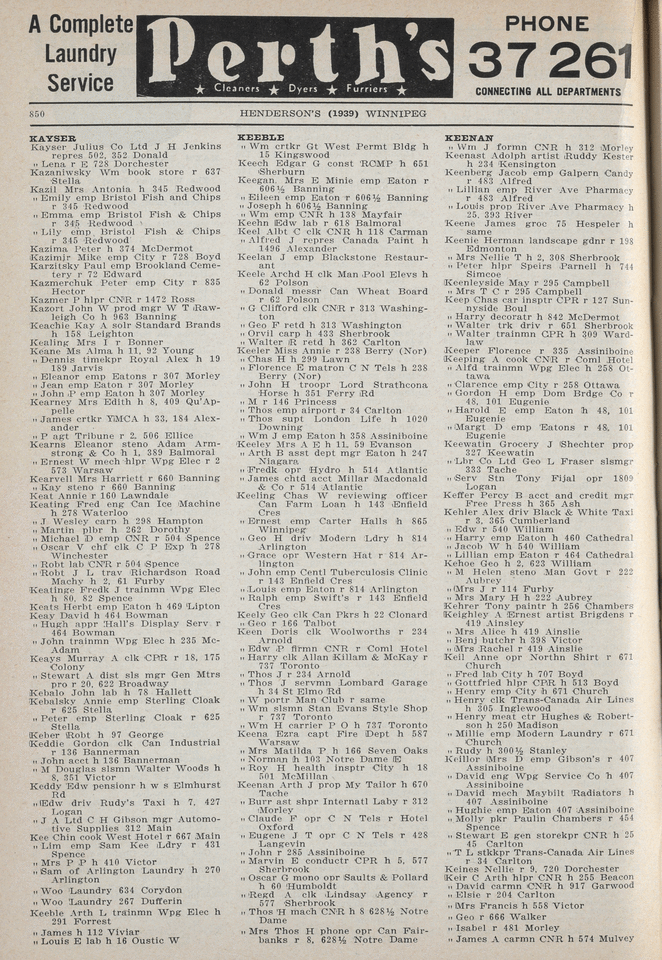 A Complete
Laundry
Service
Perth's
★ Cleaners ★ Dyers ★ Furriers ★
PHONE
37 261
CONNECTING ALL DEPARTMENTS
850
HENDERSON'S (1939) WINNIPEG
KAYSER
Kayser Julius Co Ltd J H Jenkins
repres 502, 352 Donald
„ Lena r E 728 Dorchester
Kazaniwsky Wm book store r 637
Stella
Kazil Mrs Antonia h 345 Redwood
„ Emily emp Bristol Fish and Chips
r 345 Redwood
„ Emma emp Bristol Fish & Chips
r 345 Redwood
„ Lily emp Bristol Fish & Chips
r 345 Redwood
Kazima Peter h 374 McDermot
Kazimir Mike emp City r 728 Boyd
Karzitsky Paul emp Brookland Ceme-
tery r 72 Edward
Kazmerchuk Peter emp City r 835
Hector
Kazmer P hlpr CNR r 1472 Ross
Kazort John W prod mgr W T Raw-
leigh Co h 963 Banning
Keachie Kay A solr Standard Brands
h 158 Leighton
Kealing Mrs I r Bonner
Keane Ms Alma h 11, 92 Young
„ Dennis timekpr Royal Alex h 19
189 Jarvis
„ Eleanor emp Eatons r 307 Morley
„ Jean emp Eatons r 307 Morley
„ John P emp Eaton h 307 Morley
Kearney Mrs Edith h 8, 409 Qu'Ap-
pelle
„ James crtkr YMCA h 33, 184 Alex-
ander
„ P agt Tribune r 2, 506 Ellice
Kearns Eleanor steno Adam Arm-
strong & Co h 1, 389 Balmoral
„ Ernest W mech hlpr Wpg Elec r 2
573 Warsaw
Kearvell Mrs Harriett r 660 Banning
„ Kay steno r 660 Banning
Keat Annie r 160 Lawndale
Keating Fred eng Can Ice Machine
h 278 Waterloo
„ J Wesley carn h 298 Hampton
„ Martin plbr h 262 Dorothy
„ Michael D emp CNR r 504 Spence
„ Oscar V chf clk C P Exp h 278
Winchester
„ Robt lab CNR r 504 Spence
„ Robt J L trav Richardson Road
Machy h 2, 61 Furby
Keatinge Fredk J trainmn Wpg Elec
h 80, 82 Spence
Keats Herbt emp Eaton h 469 Lipton
Keay David h 464 Bowman
„ Hugh appr Hall's Display Serv r
464 Bowman
„ John trainmn Wpg Elec h 235 Mc-
Adam
Keays Murray A clk CPR r 18, 175
Colony
„ Stewart A dist sls mgr Gen Mtrs
pro r 20, 622 Broadway
Kebalo John lab h 78 Hallett
Kebalsky Annie emp Sterling Cloak
r 625 Stella
„ Peter emp Sterling Cloak r 625
Stella
Keber Robt h 97 George
Keddie Gordon clk Can Industrial
r 136 Bannerman
„ John acct h 136 Bannerman
„ M Douglas slsmn Walter Woods h
8, 351 Victor
Keddy Edw pensionr h w s Elmhurst
Rd
„ Edw driv Rudy's Taxi h 7, 427
Logan
„ J A Ltd C H Gibson mgr Automo-
tive Supplies 312 Main
Kee Chin cook West Hotel r 667 Main
„ Lim emp Sam Kee Ldry r 431
Spence
„ Mrs P P h 410 Victor
„ Sam of Arlington Laundry h 270
Arlington
„ Woo Laundry 634 Corydon
„ Woo Laundry 267 Dufferin
Keeble Arth L trainmn Wpg Elec h
291 Forrest
„ James h 112 Viviar
„ Louis E lab h 16 Oustic W
KEEBLE
„ Wm crtkr Gt West Permt Bldg h
15 Kingswood
Keech Edgar G const RCMP h 651
Sherburn
Keegan Mrs E Minie emp Eaton r
606½ Banning
„ Eileen emp Eaton r 606½ Banning
„ Joseph h 606½ Banning
„ Wm emp CNR h 138 Mayfair
Keehn Edw lab r 618 Balmoral
Keel Albt C clk CNR h 118 Carman
„ Alfred J repres Canada Paint h
1496 Alexander
Keelan J emp Blackstone Restaur-
ant
Keele Archd H clk Man Pool Elevs h
62 Polson
„ Donald messr Can Wheat Board
r 62 Polson
„ G Clifford clk CNR r 313 Washing-
ton
„ Geo F retd h 313 Washington
„ Orvil carp h 433 Sherbrook
„ Walter R retd h 362 Carlton
Keeler Miss Annie r 238 Berry (Nor)
„ Chas H h 299 Lawn
„ Florence E matron C N Tels h 238
Berry (Nor)
„ John H troopr Lord Strathcona
Horse h 351 Ferry Rd
„ M r 146 Princess
„ Thos emp airport r 34 Carlton
„ Thos supt London Life h 1020
Downing
„ Wm J emp Eaton h 358 Assiniboine
Keeley Mrs A E h 11, 59 Evanson
„ Arth B asst dept mgr Eaton h 247
Niagara
„ Fredk opr Hydro h 514 Atlantic
„ James chtd acct Millar Macdonald
& Co r 514 Atlantic
Keeling Chas W reviewing officer
Can Farm Loan h 143 Enfield
Cres
„ Ernest emp Carter Halls h 865
Winnipeg
„ Geo H driv Modern Ldry h 814
Arlington
„ Grace opr Western Hat r 814 Ar-
lington
„ John emp Centl Tuberculosis Clinic
r 143 Enfield Cres
„ Louis emp Eaton r 814 Arlington
„ Ralph emp Swift's r 143 Enfield
Cres
Keely Geo clk Can Pkrs h 22 Clonard
„ Geo r 166 Talbot
Keen Doris clk Woolworths r 234
Arnold
„ Edw P firmn CNR r Coml Hotel
„ Harry clk Allan Killam & McKay r
737 Toronto
„ Thos J r 234 Arnold
„ Thos J servmn Lombard Garage
h 34 St Elmo Rd
„ W portr Man Club r same
„ Wm slsmn Stan Evans Style Shop
r 737 Toronto
„ Wm H carrier P O h 737 Toronto
Keena Ezra capt Fire Dept h 587
Warsaw
„ Mrs Matilda P h 166 Seven Oaks
„ Norman h 103 Notre Dame E
„ Roy H health insptr City h 18
501 McMillan
Keenan Arth J prop My Tailor h 670
Tache
„ Burr ast shpr Internatl Laby r 312
Morley
„ Claude F opr C N Tels r Hotel
Oxford
„ Eugene J T opr C N Tels r 428
Langevin
„ John r 285 Assiniboine
„ Marvin E conductr CPR h 5, 577
Sherbrook
„ Oscar G mono opr Saults & Pollard
h 60 Humboldt
„ Regd A clk Lindsay Agency r
577 Sherbrook
„ Thos H mach CNR h 8 628½ Notre
Dame
„ Mrs Thos H phone opr Can Fair-
banks r 8, 628½ Notre Dame
KEENAN
„ Wm J formn CNR h 312 Morley
Keenast Adolph artist Ruddy Kester
h 234 Kensington
Keenberg Jacob emp Galpern Candy
r 483 Alfred
„ Lillian emp River Ave Pharmacy
r 483 Alfred
„ Louis prop River Ave Pharmacy h
25, 393 River
Keene James groc 75 Hespeler h
same
Keenie Herman landscape gdnr r 198
Edmonton
„ Mrs Nellie T h 2, 308 Sherbrook
„ Peter hlpr Speirs Parnell h 744
Simcoe
Keenleyside May r 295 Campbell
„ Mrs T C r 295 Campbell
Keep Chas car insptr CPR r 127 Sun-
nyside Boul
„ Harry decoratr h 842 McDermot
„ Walter trk driv r 651 Sherbrook
„ Walter trainmn CPR h 309 Ward-
law
Keeper Florence r 335 Assiniboine
Keeping A cook CNR r Coml Hotel
„ Alfd trainmn Wpg Elec h 258 Ot-
tawa
„ Clarence emp City r 258 Ottawa
„ Gordon H emp Dom Brdge Co r
48, 101 Eugenie
„ Harold E emp Eaton h 48, 101
Eugenie
„ Margt D emp Eatons r 48, 101
Eugenie
Keewatin Grocery J Shechter prop
327 Keewatin
„ Lbr Co Ltd Geo L Fraser slsmgr
333 Tache
„ Serv Stn Tony Fijal opr 1809
Logan
Keffer Percy B acct and credit mgr
Free Press h 365 Ash
Kehler Alex driv Black & White Taxi
r 3, 365 Cumberland
„ Edw r 540 William
„ Harry emp Eaton h 460 Cathedral
„ Jacob W h 540 William
„ Lillian emp Eaton r 464 Cathedral
Kehoe Geo h 2, 623 William
„ M Helen steno Man Govt r 222
Aubrey
„ Mrs J r 114 Furby
„ Mrs Mary H h 222 Aubrey
Kehrer Tony paintr h 256 Chambers
Keighley A Ernest artist Brigdens r
419 Ainsley
„ Mrs Alice h 419 Ainslie
„ Benj butchr h 398 Victor
„ Mrs Rachel r 419 Ainslie
Keil Anne opr Northn Shirt r 671
Church
„ Fred lab City h 707 Boyd
„ Gottfried hlpr CPR h 513 Boyd
„ Henry emp City h 671 Church
„ Henry clk Trans-Canada Air Lines
h 305 Inglewood
„ Henry meat ctr Hughes & Robert-
son h 250 Madison
„ Millie emp Modern Laundry r 671
Church
„ Rudy h 300½ Stanley
Keillor Mrs D emp Gibson's r 407
Assiniboine
„ David eng Wpg Service Co h 407
Assiniboine
„ David mech Maybilt Radiators h
407 Assiniboine
„ Hughie emp Eaton 407 Assiniboine
„ Molly pkr Paulin Chambers r 454
Spence
„ Stewart E gen storekpr CNR h 25
45 Carlton
„ T L stkkpr Trans-Canada Air Lines
r 34 Carlton
Keines Nellie r 9, 720 Dorchester
Keir C Arch hlpr CNR h 255 Beacon
„ David carmn CNR h 917 Garwood
„ Elsie r 204 Carlton
„ Mrs Francis h 558 Victor
„ Geo r 666 Walker
„ Isabel r 481 Morley
„ James A carmn CNR h 574 Mulvey